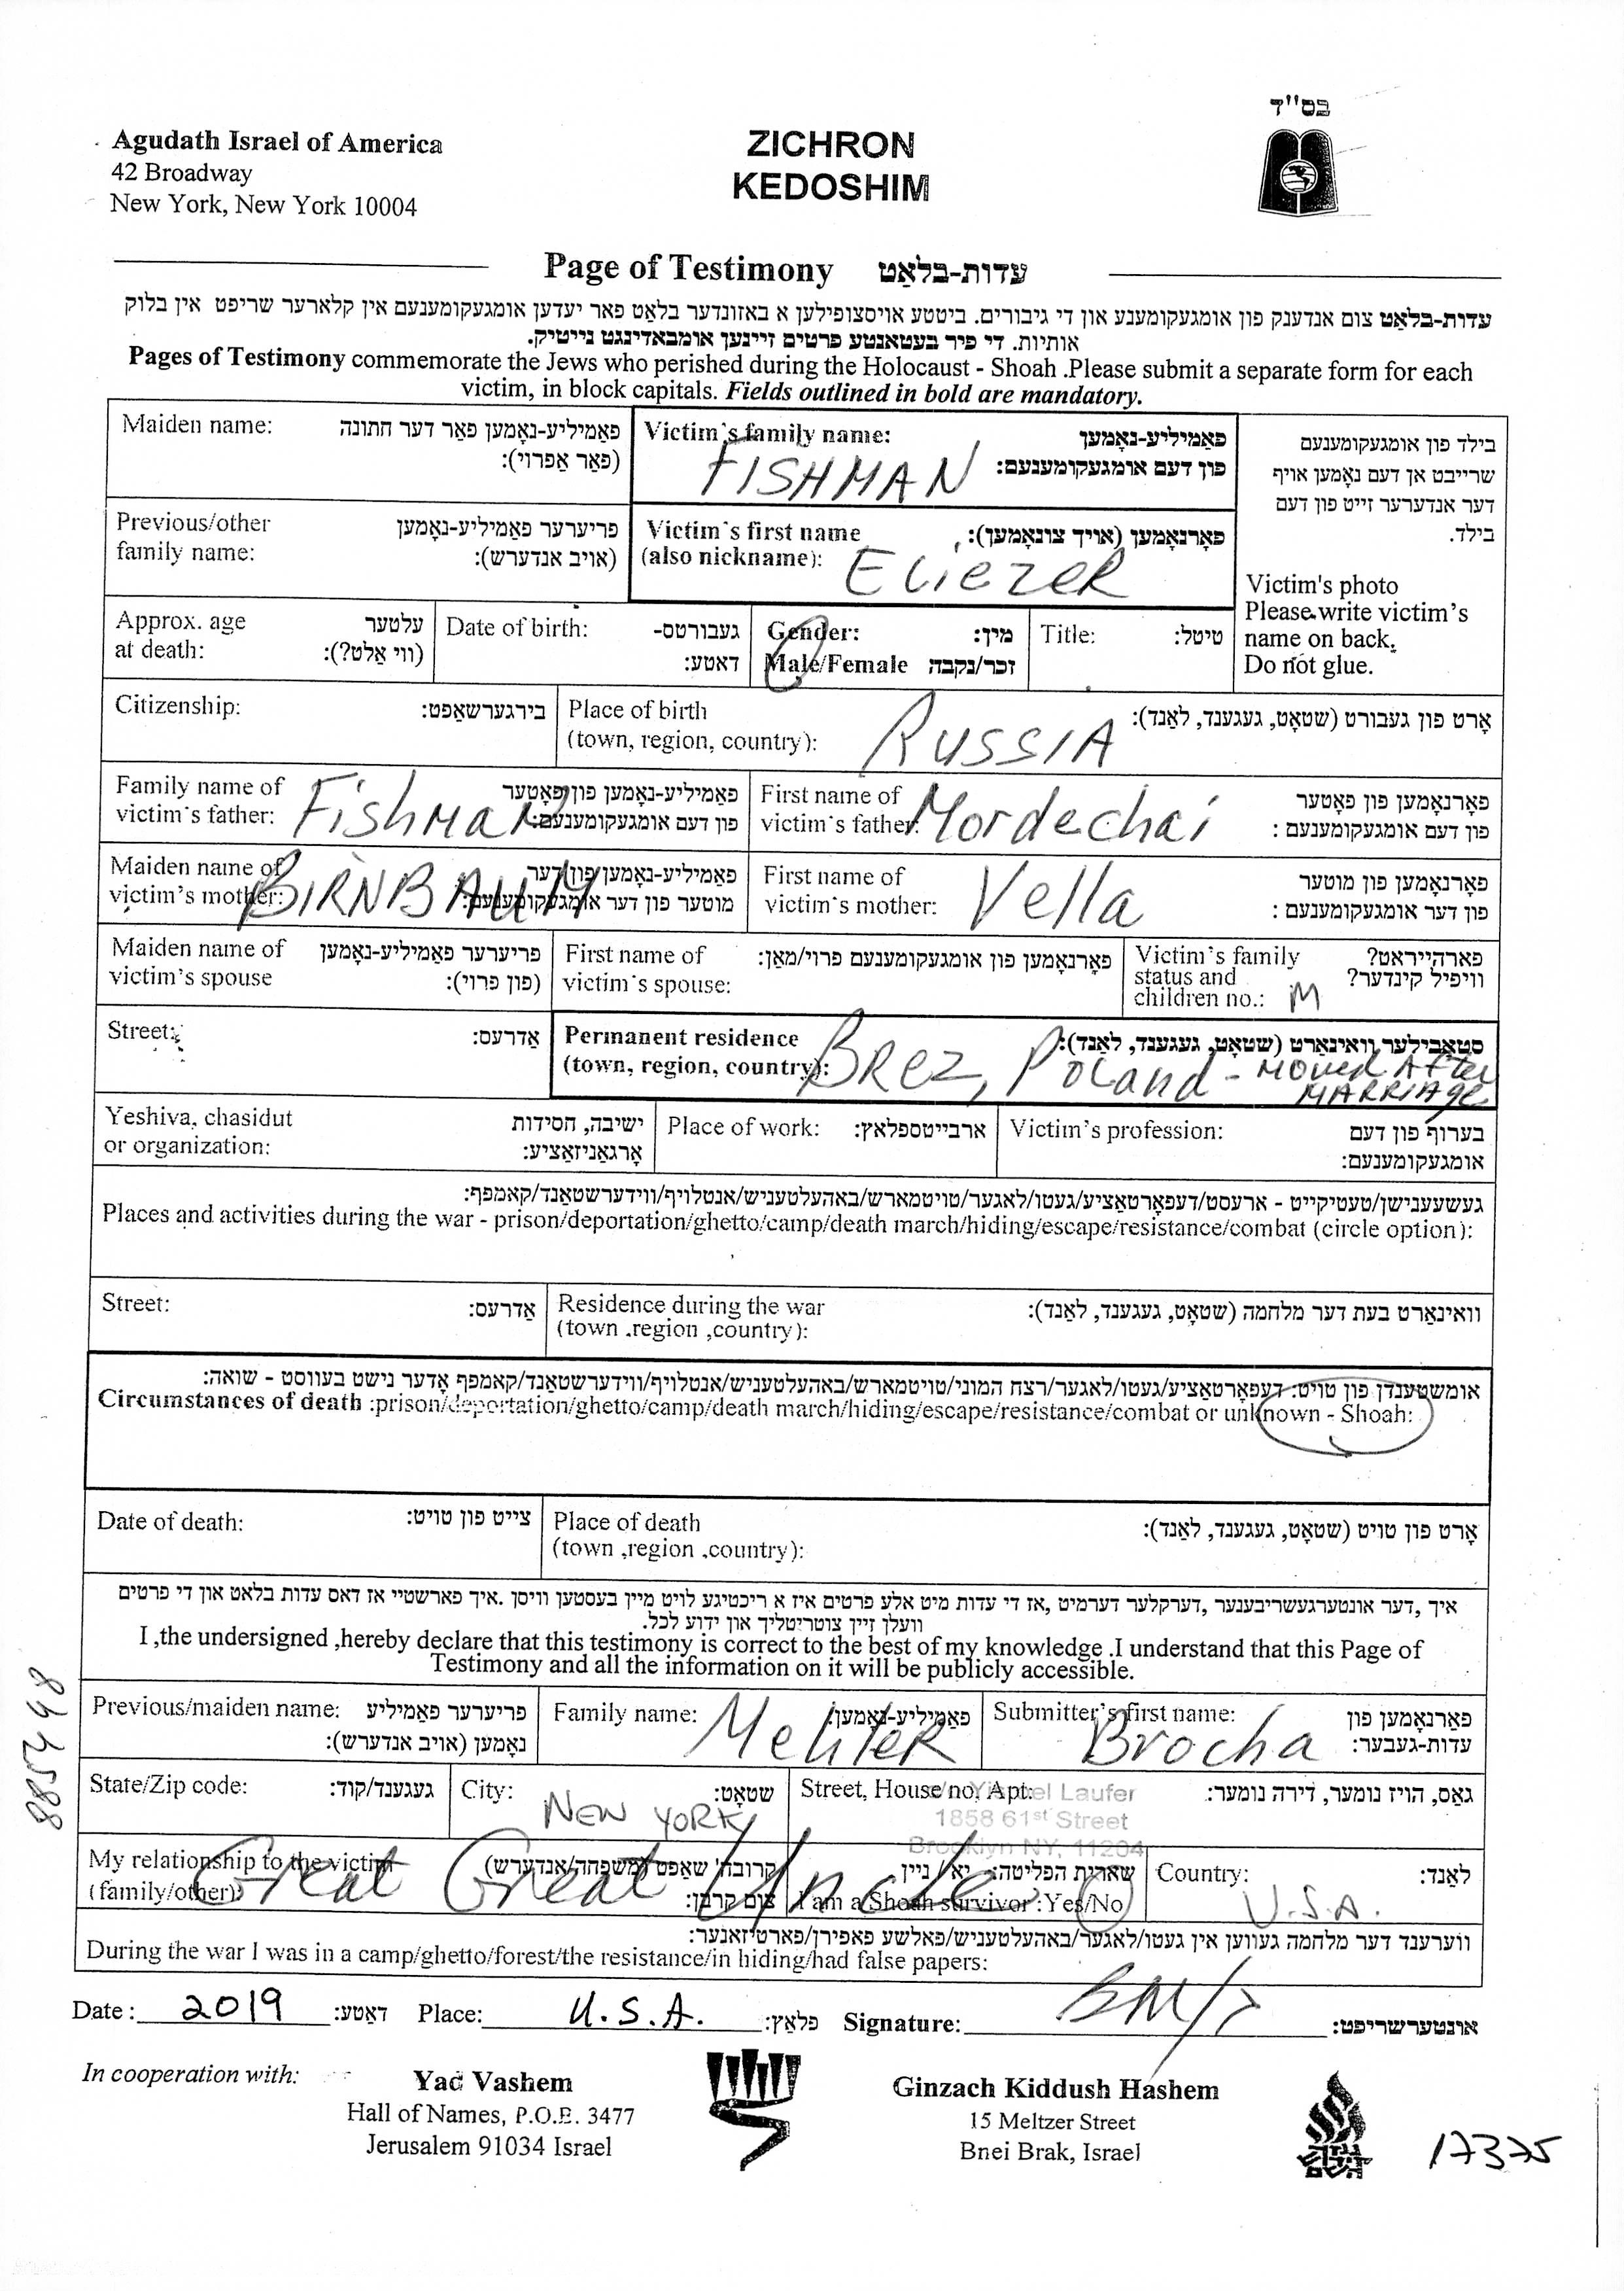 בס"ד
Agudath Israel of America
42 Broadway
New York, New York 10004
ZICHRON
KEDOSHIM
Page of Testimony עדות-בלאַט
עדות-בלאַט צום אנדענק פון אומגעקומענע און די גיבורים. ביטטע אויסצופילען א באזונדער בלאט פאר יעדען אומגעקומענעם אין קלארער שריפט אין בלוק
אותיות. די פיר בעטאנטע פרטים זיינען אומבאדינגט נייטיק.
Pages of Testimony commemorate the Jews who perished during the Holocaust - Shoah .Please submit a separate form for each
victim, in block capitals. Fields outlined in bold are mandatory.
Maiden name: פאַמיליע-נאָמען פאר דער חתונה
(פאַר אַפרוי):
Victim's family name: פאַמיליע-נאָמען
פון דעם אומגעקומענעם:
FISHMAN
בילד פון אומגעקומענעם
שרייבט אן דעם נאָמען אויף
דער אנדערער זייט פון דעם
בילד.
Victim's photo
Please write victim's
name on back.
Do not glue.
Previous/other
family name:
פריערער פאַמיליע-נאָמען
(אויב אנדערש):
Victim's first name
(also nickname):
פאָרנאָמען (אויך צונאָמען):
Eliezer
Approx. age
at death:
עלטער
(ווי אַלט?):
Date of birth: געבורטס-
דאטע:
Gender: מין:
Male/Female זכר/נקבה
Title: טיטל:
Citizenship: בירגערשאַפט:
Place of birth
(town, region, country):
אָרט פון געבורט (שטאָט, געגענד, לאַנד):
RUSSIA
Family name of
victim's father:
פאַמיליע-נאָמען פון פאָטער
פון דעם אומגעקומענעם:
Fishman
First name of
victim's father:
פאָרנאָמען פון פאטער
פון דעם אומגעקומענעם :
Mordechai
Maiden name of
victim's mother:
פאַמיליע-נאָמען פון דער
מוטער פון דער אומגעקומענעם:
BIRNBAUM
First name of
victim's mother:
פאָרנאָמען פון מוטער
פון דער אומגעקומענעם :
Vella
Maiden name of
victim's spouse
פריערער פאַמיליע-נאָמען
(פון פרוי):
First name of
victim's spouse:
פאָרנאָמען פון אומגעקומענעם פרוי/מאַן:
Victim's family
status and
children no.:
פארהייראט?
וויפיל קינדער?
M
Street: אַדרעס:
Permanent residence
(town, region, country):
סטאַבילער וואוינאָרט (שטאָט, געגענד, לאַנד):
Brez, Poland - Moved After
MARRIAge
Yeshiva, chasidut
or organization:
ישיבה, חסידות
אָרגאַניזאַציע:
Place of work: ארבייטספלאץ:
Victim's profession: בערוף פון דעם
אומגעקומענעם:
געשעענישן/טעטיקייט - ארעסט/דעפאָרטאַציע/געטו/לאגער/טויטמארש/באהעלטעניש/אנטלויף/ווידערשטאַנד/קאמפף:
Places and activities during the war - prison/deportation/ghetto/camp/death march/hiding/escape/resistance/combat (circle option):
Street: אַדרעס:
Residence during the war
(town .region ,country):
וואינאַרט בעת דער מלחמה (שטאָט, געגענד, לאַנד):
אומשטענדן פון טויט: דעפאָרטאַציע/געטו/לאגער/רצח המוני/טויטמארש/באהעלטעניש/אנטלויף/ווידערשטאַנד/קאמפף אָדער נישט בעווסט - שואה:
Circumstances of death :prison/deportation/ghetto/camp/death march/hiding/escape/resistance/combat or unknown - Shoah:
Date of death: צייט פון טויט:
Place of death
(town ,region ,country):
אָרט פון טויט (שטאָט, געגענד, לאַנד):
איך ,דער אונטערגעשריבענער ,דערקלער דערמיט ,אז די עדות מיט אלע פרטים איז א ריכטיגע לויט מיין בעסטען וויסן .איך פארשטיי אז דאס עדות בלאט און די פרטים
וועלן זיין צוטריטליך און ידוע לכל.
I ,the undersigned ,hereby declare that this testimony is correct to the best of my knowledge .I understand that this Page of
Testimony and all the information on it will be publicly accessible.
Previous/maiden name: פריערער פאַמיליע
נאָמען (אויב אנדערש):
Family name: פאַמיליע-נאָמען:
Submitter's first name: פאַרנאָמען פון
עדות-געבער:
Brocha
State/Zip code: געגענד/קוד:
City: שטאָט:
NEW YORK
Street, House no, Apt: גאַס, הויז נומער, דירה נומער:
Laufer
1858 61st Street
Brooklyn NY, 11204
My relationship to the victim
(family/other):
קרובה' שאַפט (משפחה/אנדערש)
צום קרבן:
Great Great Uncle
שארית הפליטה: יא / ניין
I am a Shoah survivor :Yes/No
Country: לאַנד:
U.S.A.
ווערענד דער מלחמה געווען אין געטו/לאגער/באהעלטעניש/פאלשע פאפירן/פארטיזאנער:
During the war I was in a camp/ghetto/forest/the resistance/in hiding/had false papers:
Date: 2019 דאַטע: Place: U.S.A. פלאַץ: Signature: אונטערשריפט:
In cooperation with:
Yad Vashem
Hall of Names, P.O.B. 3477
Jerusalem 91034 Israel
Ginzach Kiddush Hashem
15 Meltzer Street
Bnei Brak, Israel
גנזך
קידוש
השם
17375